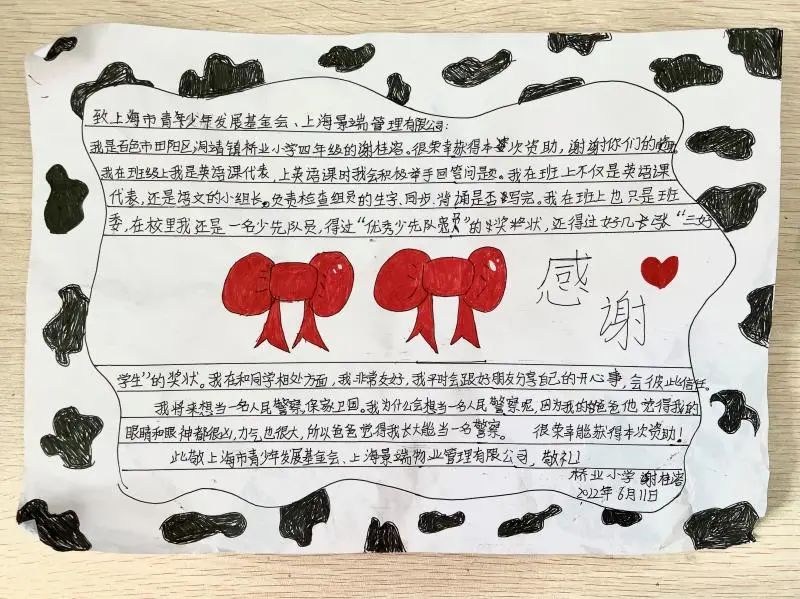 致上海市青年少年发展基金会、上海景瑞管理有限公司:
我是百色市田阳区洞靖镇桥业小学四年级的谢桂溶。很荣幸获得本次资助，谢谢你们的
我在班级上我是英语课代表，上英语课时我会积极举手回答问题。我在班上不仅是英语课
代表，还是语文的小组长，负责检查组员的生字、同步、背诵是否写完。我在班上也只是班
委，在校里我还是一名少先队员，得过“优秀少先队员”的奖状，还得过好几张“三好
感
谢
学生”的奖状。我在和同学相处方面，我非常友好，我平时会跟好朋友分享自己的开心事，会彼此信任。
我将来想当一名人民警察，保家卫国。我为什么会想当一名人民警察呢，因为我的爸爸他觉得我的
眼睛和眼神都很凶，力气也很大，所以爸爸觉得我长大能当一名警察。 很荣幸能获得本次资助！
此敬上海市青少年发展基金会、上海景瑞物业管理有限公司，敬礼！
桥业小学 谢桂溶
2022年6月11日